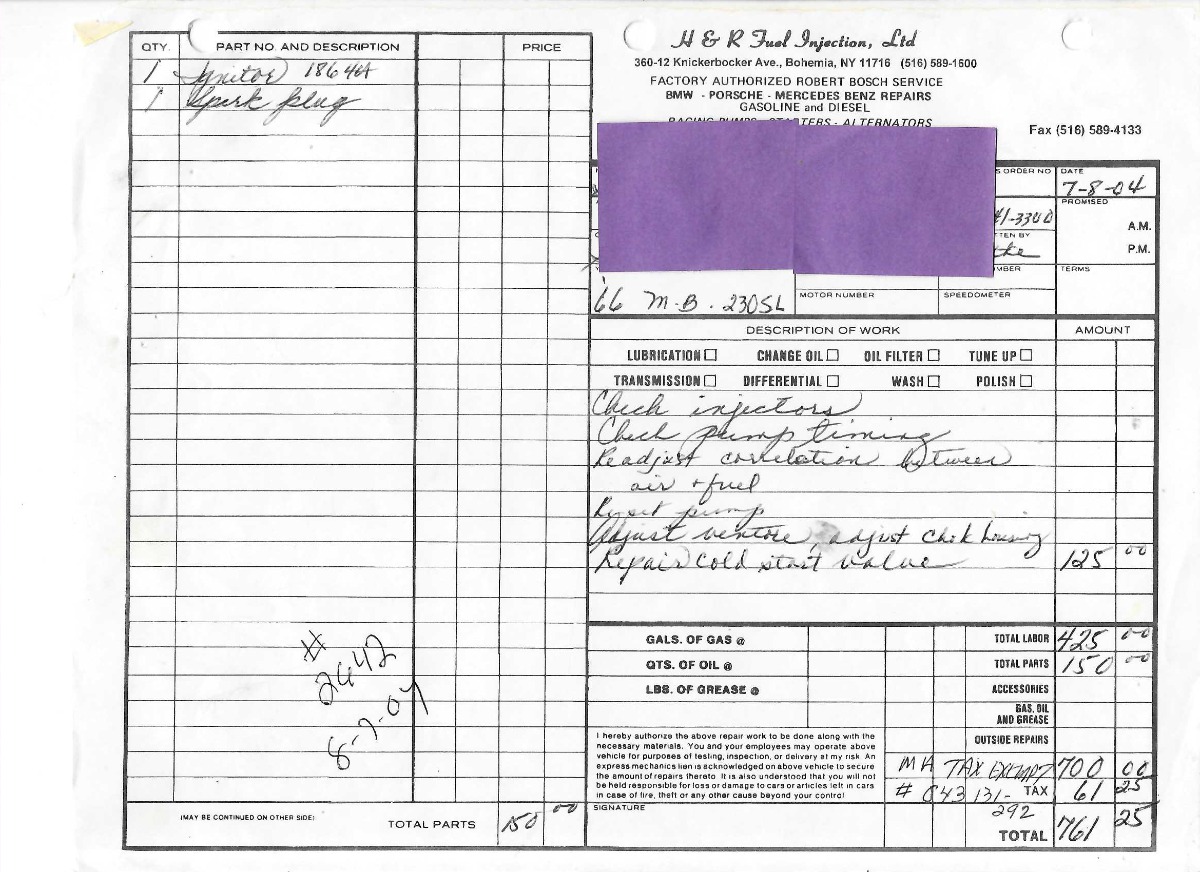 H & R Fuel Injection, Ltd
360-12 Knickerbocker Ave., Bohemia, NY 11716 (516) 589-1600
FACTORY AUTHORIZED ROBERT BOSCH SERVICE
BMW - PORSCHE - MERCEDES BENZ REPAIRS
GASOLINE and DIESEL
RACING PUMPS - STARTERS - ALTERNATORS
Fax (516) 589-4133
QTY. PART NO. AND DESCRIPTION PRICE
1 Ignitor 1864A
1 Spark plug
#
2642
8-7-04
(MAY BE CONTINUED ON OTHER SIDE) TOTAL PARTS 150 00
S ORDER NO DATE
7-8-04
PROMISED
41-3300
A.M.
TEN BY
P.M.
MBER TERMS
'66 M-B. 230SL MOTOR NUMBER SPEEDOMETER
DESCRIPTION OF WORK AMOUNT
LUBRICATION CHANGE OIL OIL FILTER TUNE UP
TRANSMISSION DIFFERENTIAL WASH POLISH
Check injectors
Check pump timing
Readjust correlation between
air + fuel
Reset pump
Adjust ventore, adjust chok housing
Repair cold start value 125 00
GALS. OF GAS @ TOTAL LABOR 425 00
QTS. OF OIL @ TOTAL PARTS 150 00
LBS. OF GREASE @ ACCESSORIES
GAS, OIL
AND GREASE
OUTSIDE REPAIRS
I hereby authorize the above repair work to be done along with the
necessary materials. You and your employees may operate above
vehicle for purposes of testing, inspection, or delivery at my risk. An
express mechanics lien is acknowledged on above vehicle to secure
the amount of repairs thereto. It is also understood that you will not
be held responsible for loss or damage to cars or articles left in cars
in case of fire, theft or any other cause beyond your control
MA TAX EXEMPT 700 00
# 043 131- TAX 61 25
292
SIGNATURE
TOTAL 761 25